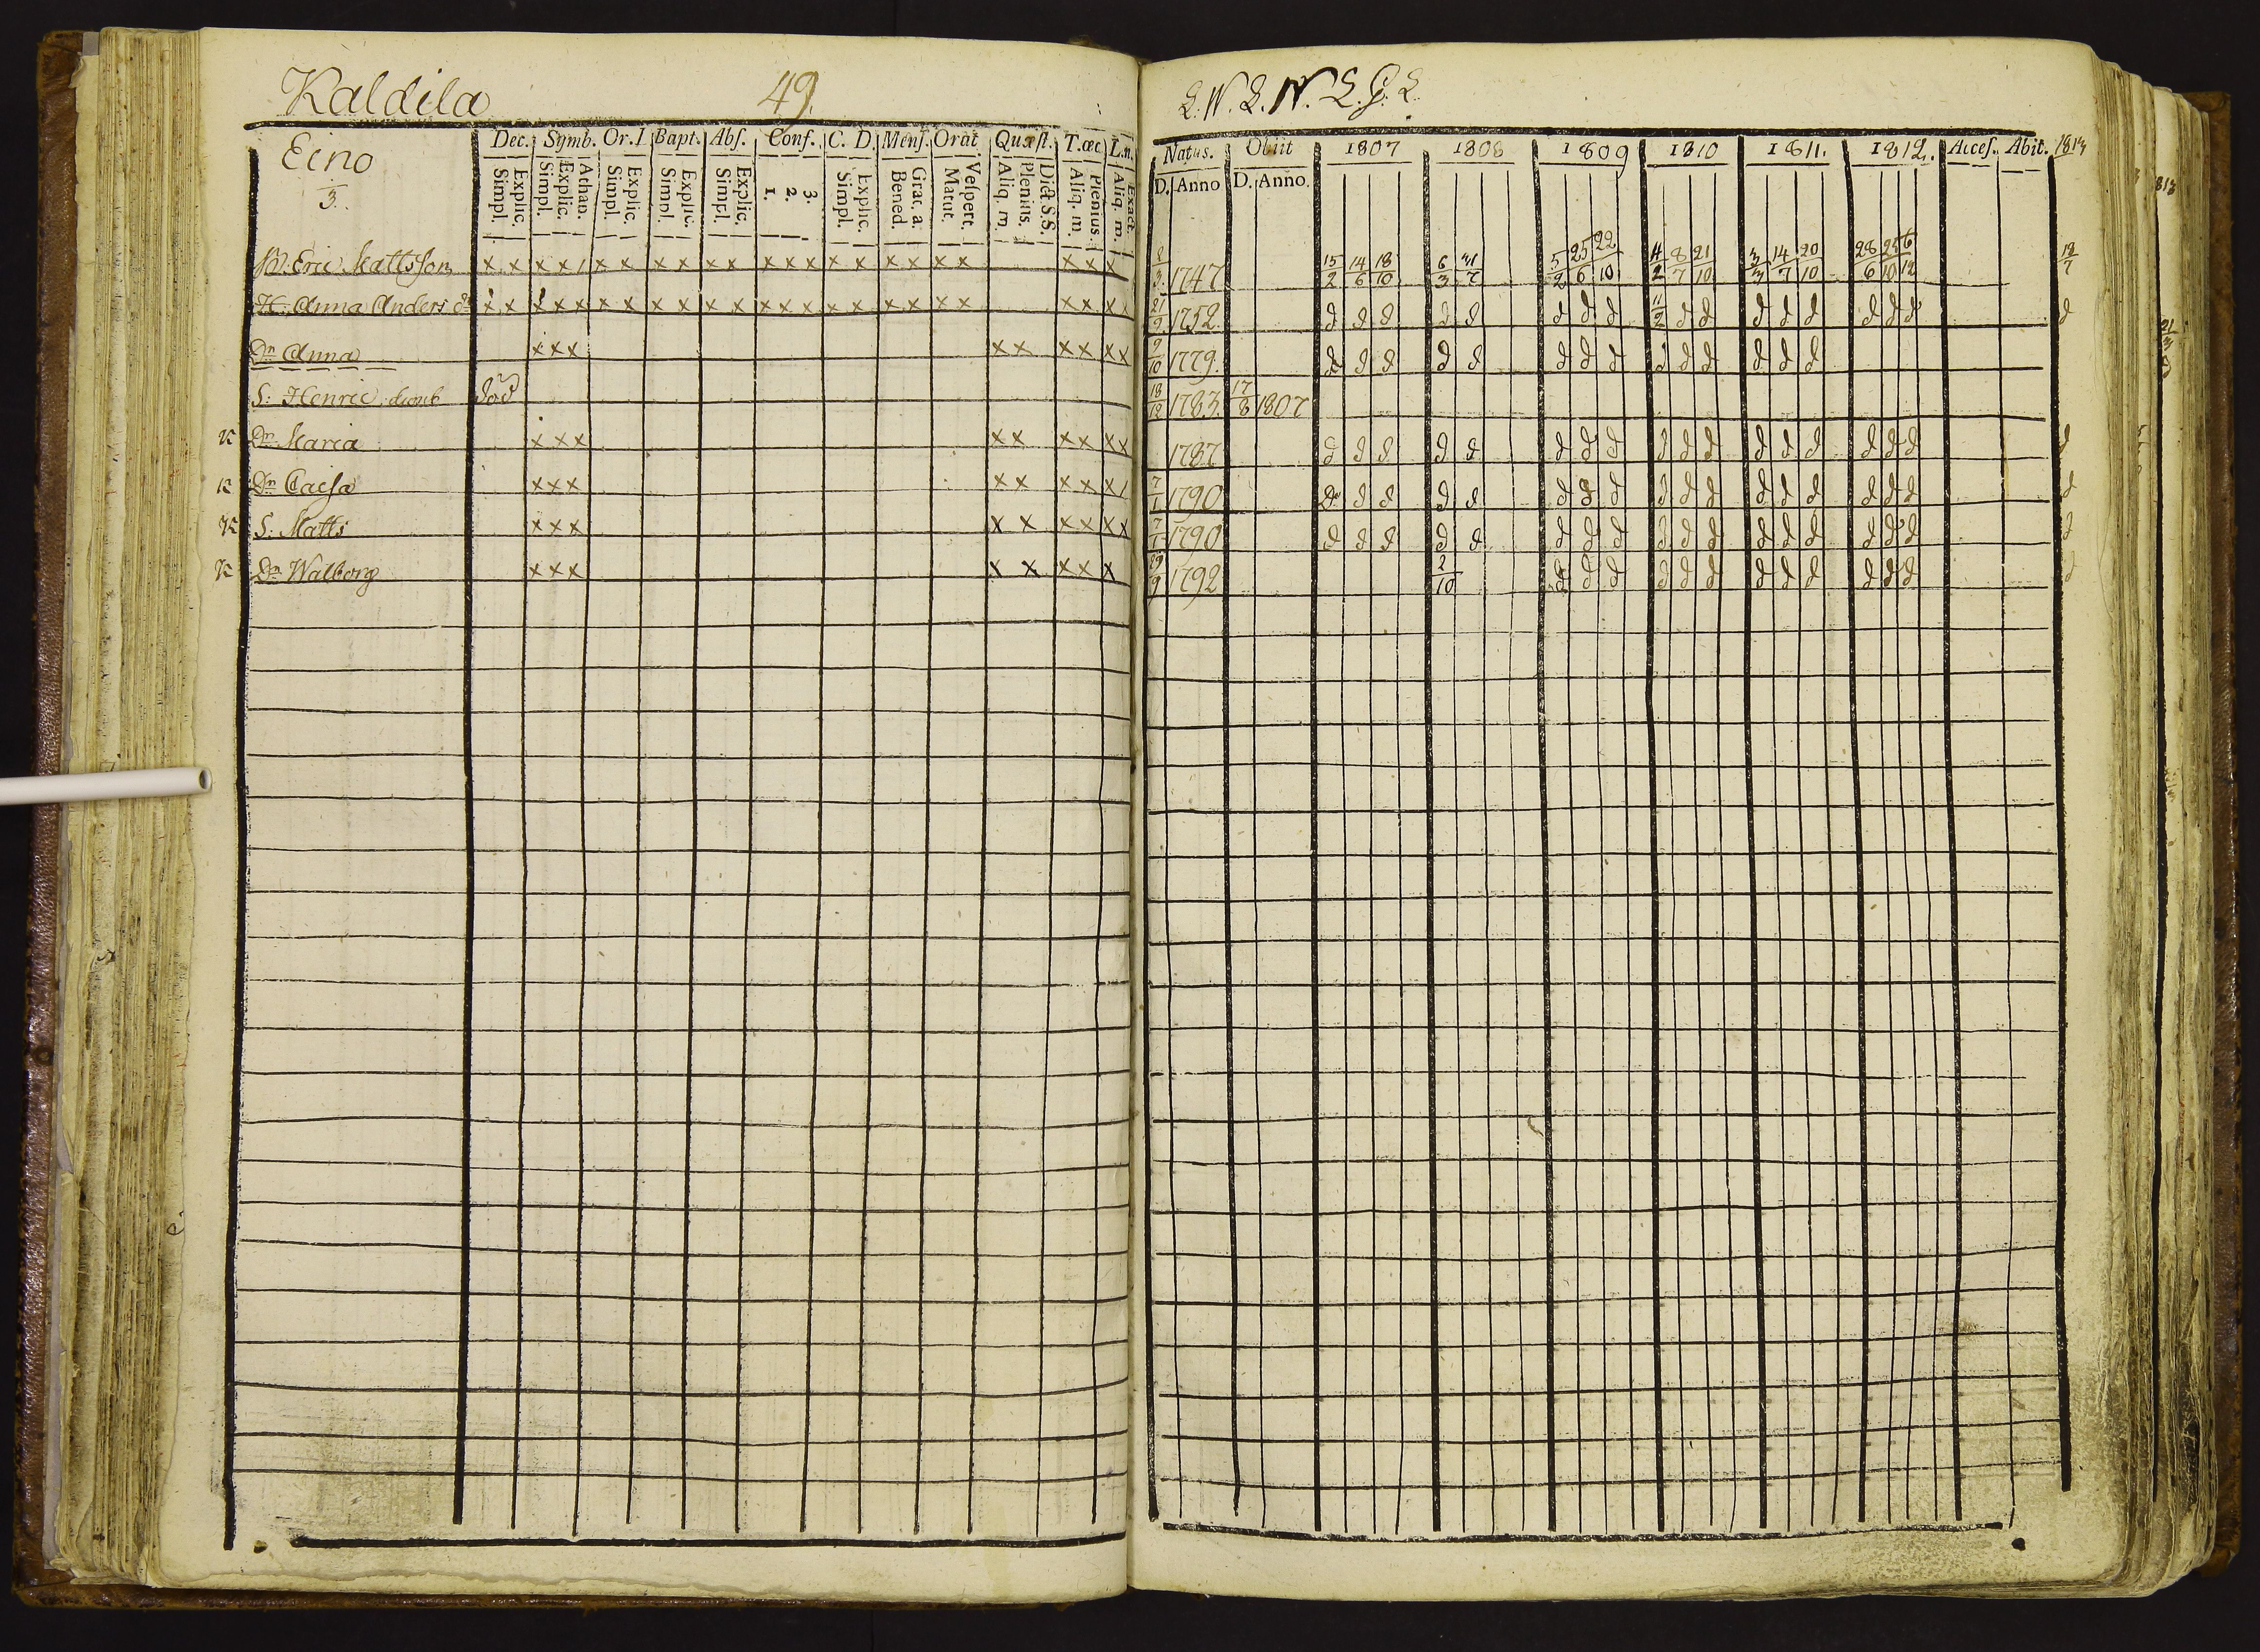 Kaldila 49.
Eino
3.
Dec. Symb. Or. I. Bapt. Abſ. Conf. C. D. Menſ. Orat Quæſt. T. œc L. n.
Explic. Simpl. Athan. Explic. Simpl. Explic. Simpl. Explic. Simpl. Explic. Simpl. 3. 2. 1. Explic. Simpl. Grat. a. Bened. Veſpert. Matut. Dict S.S. Plenius. Aliq. m. Plenius. Aliq. m. Exact. Aliq. m.
Eric Mattsson x x x x / x x x x x x x x x x x x x x x x x x
H. Anna Anders dr x x x x x x x x x x x x x x x x x x x x x x x
Dr Anna x x x x x x x x x
S: Henric dumb död
Dr Maria x x x x x x x x x
Dr Caisa x x x x x x x x /
S: Matts x x x x x x x x x
Dr Walborg x x x x x x x x
L. W. L. N. L. G. L.
Natus. Obiit 1807 1808 1809 1810 1811. 1812. Acceſ. Abit. 1813
D. Anno D. Anno.
1747 15/2 14/6 18/10 6/3 31/7 5/2 25/6 22/10 4/2 8/7 21/10 3/3 14/7 20/10 28/6 25/10 6/12 12/7
21/9 1752 d d d d d d d d 11/2 d d d d d d d d d
9/10 1779. d d d d d d d d d d d d d d
18/12 1783. 17/8 1807
1787 d d d d d d d d d d d d d d d d d d
7/1 1790 d d d d d d d d d d d d d d d d d d
7/1 1790 d d d d d d d d d d d d d d d d d d
29/9 1792 2/10 d d d d d d d d d d d d d